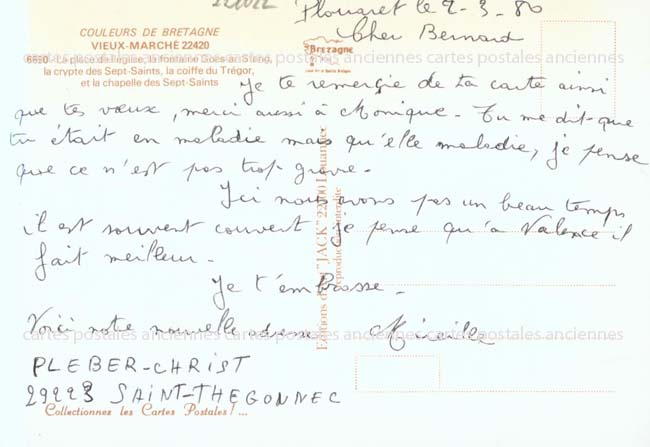 Plouaret le 2-3-80
COULEURS DE BRETAGNE
VIEUX-MARCHÉ 22420
Cher Bernard
Bretagne
6690 - La place de l'église, la fontaine
la crypte des Sept-Saints, la coiffe du Trégor,
et la chapelle des Sept-Saints
cartes postales anciennes cartes postales anciennes cartes postales anciennes
Je te remergie de ta carte ainsi
que tes vœux, merci aussi à Monique. Tu me dit que
tu était en maladie mais qu'elle maladie, je pense
que ce n'est pas trop grave.
Ici nous avons pas un beau temps
il est souvent couvert je pense qu'à Valence il
fait meilleur.
Je t'embrasse.
Voici notre nouvelle adresse Mireille
cartes postales anciennes cartes postales anciennes cartes postales anciennes
PLEBER-CHRIST
29223 SAINT-THEGONNEC
Collectionnez les Cartes Postales !...
Editions d'Art "JACK" 22000 Louannec
Reproduction interdite